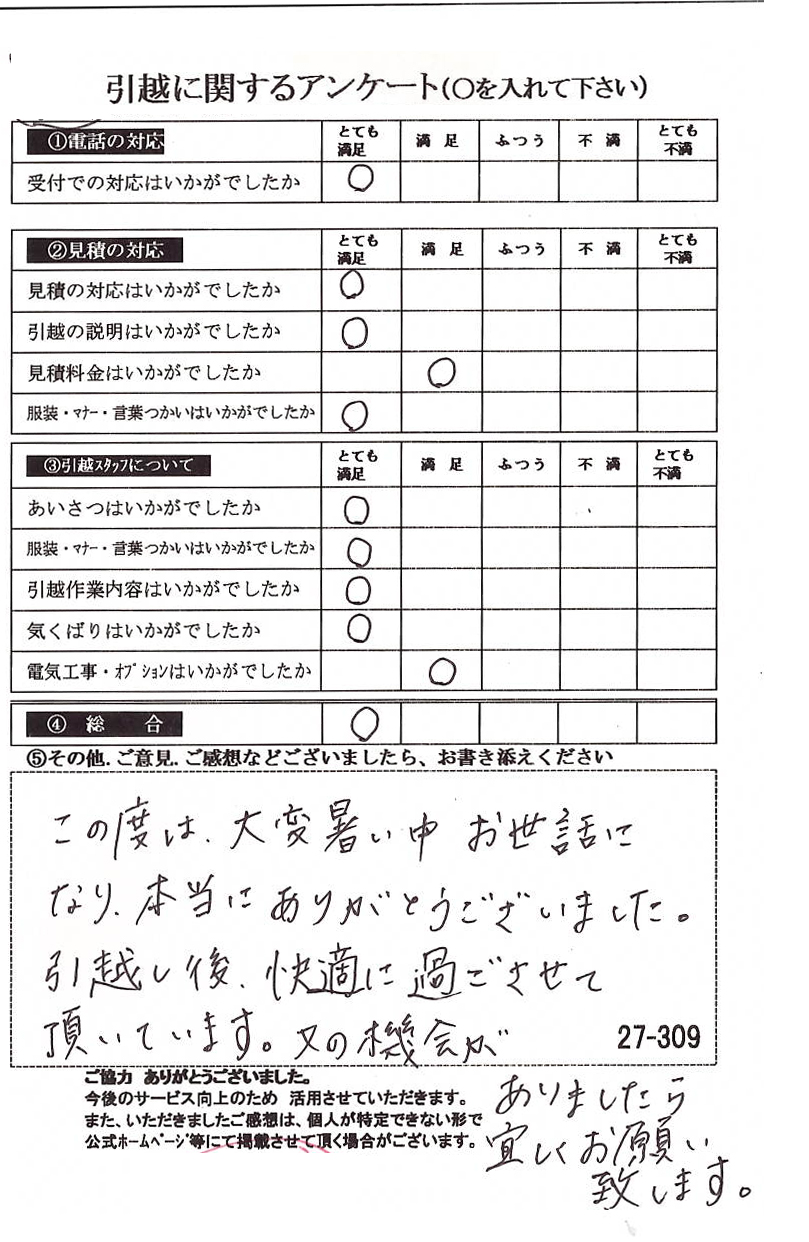 引越に関するアンケート(〇を入れて下さい)
①電話の対応 とても満足 満足 ふつう 不満 とても不満
受付での対応はいかがでしたか 〇
②見積の対応 とても満足 満足 ふつう 不満 とても不満
見積の対応はいかがでしたか 〇
引越の説明はいかがでしたか 〇
見積料金はいかがでしたか 〇
服装・マナー・言葉つかいはいかがでしたか 〇
③引越スタッフについて とても満足 満足 ふつう 不満 とても不満
あいさつはいかがでしたか 〇
服装・マナー・言葉つかいはいかがでしたか 〇
引越作業内容はいかがでしたか 〇
気くばりはいかがでしたか 〇
電気工事・オプションはいかがでしたか 〇
④ 総 合 〇
⑤その他.ご意見.ご感想などございましたら、お書き添えください
この度は、大変暑い中 お世話に
なり、本当にありがとうございました。
引越し後、快適に過ごさせて
頂いています。又の機会が
27-309
ありましたら
宜しくお願い
致します。
ご協力 ありがとうございました。
今後のサービス向上のため 活用させていただきます。
また、いただきましたご感想は、個人が特定できない形で
公式ホームページ等にて掲載させて頂く場合がございます。